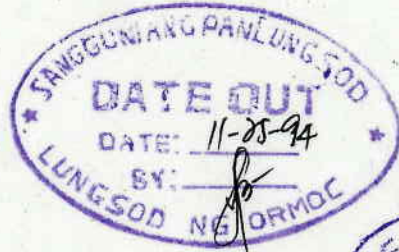 SANGGUNIANG PANLUNGSOD
DATE OUT
DATE: 11-25-94
BY:
LUNGSOD NG ORMOC